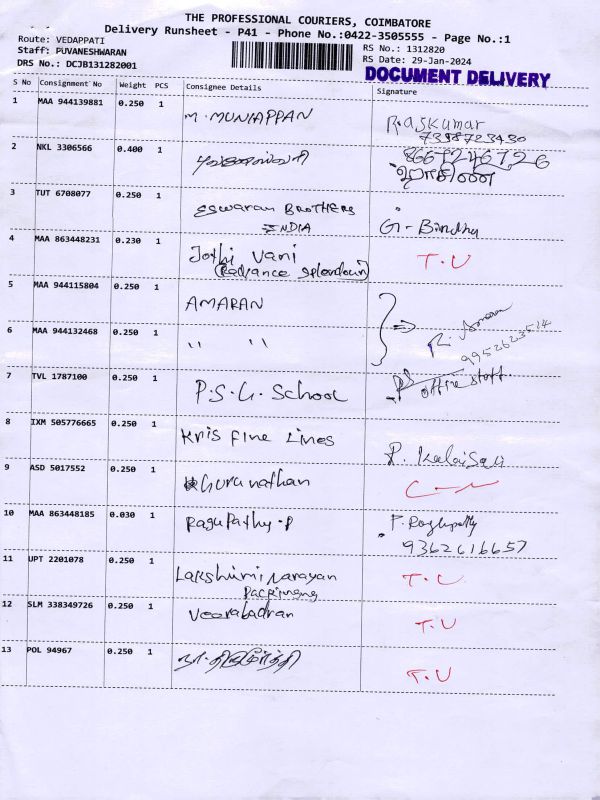 THE PROFESSIONAL COURIERS, COIMBATORE
Delivery Runsheet - P41 - Phone No.:0422-3505555 - Page No.:1
Route: VEDAPPATI
RS No.: 1312820
Staff: PUVANESHWARAN
RS Date: 29-Jan-2024
DRS No.: DCJB131282001
DOCUMENT DELIVERY
S No Consignment No Weight PCS Consignee Details Signature
1 MAA 944139881 0.250 1 M. MUNIAPPAN R. AJKUMAR
7398723430
2 NKL 3306566 0.400 1 8667246726
3 TUT 6708077 0.250 1 ESWARAN BROTHERS G - Bindhu
INDIA
4 MAA 863448231 0.230 1 Jothi Vani T.U
(Radiance splendour)
5 MAA 944115804 0.250 1 AMARAN
6 MAA 944132468 0.250 1 " " R.
9952623514
7 TVL 1787100 0.250 1 P.S.G. School office staff
8 IXM 505776665 0.250 1 Kris Fine Lines P. Kalaiselvi
9 ASD 5017552 0.250 1 Gurunathan
10 MAA 863448185 0.030 1 Ragupathy.P P. Ragupathy
9362616657
11 UPT 2201078 0.250 1 Lakshiminarayan T.U
12 SLM 338349726 0.250 1 Veerabadran T.U
13 POL 94967 0.250 1 நா. திருமூர்த்தி T.U